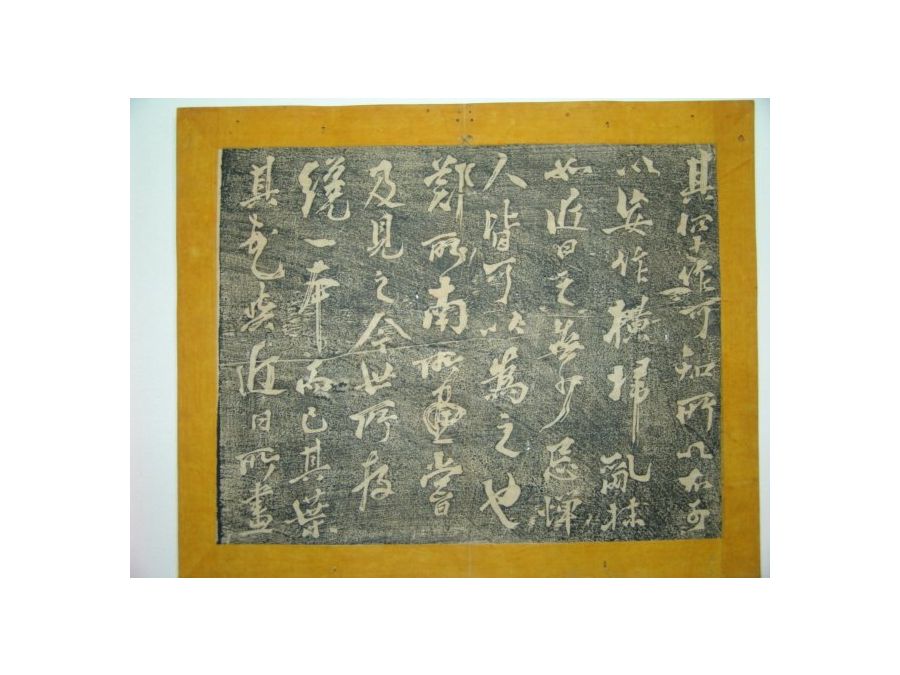 其罕作可知所以不可
以妄作橫掃亂抹
如近日之無少忌憚
人皆可以為之也
鄭所南所畫嘗
及見之今世所存
纔一本而已其葉
其花與近日所畫